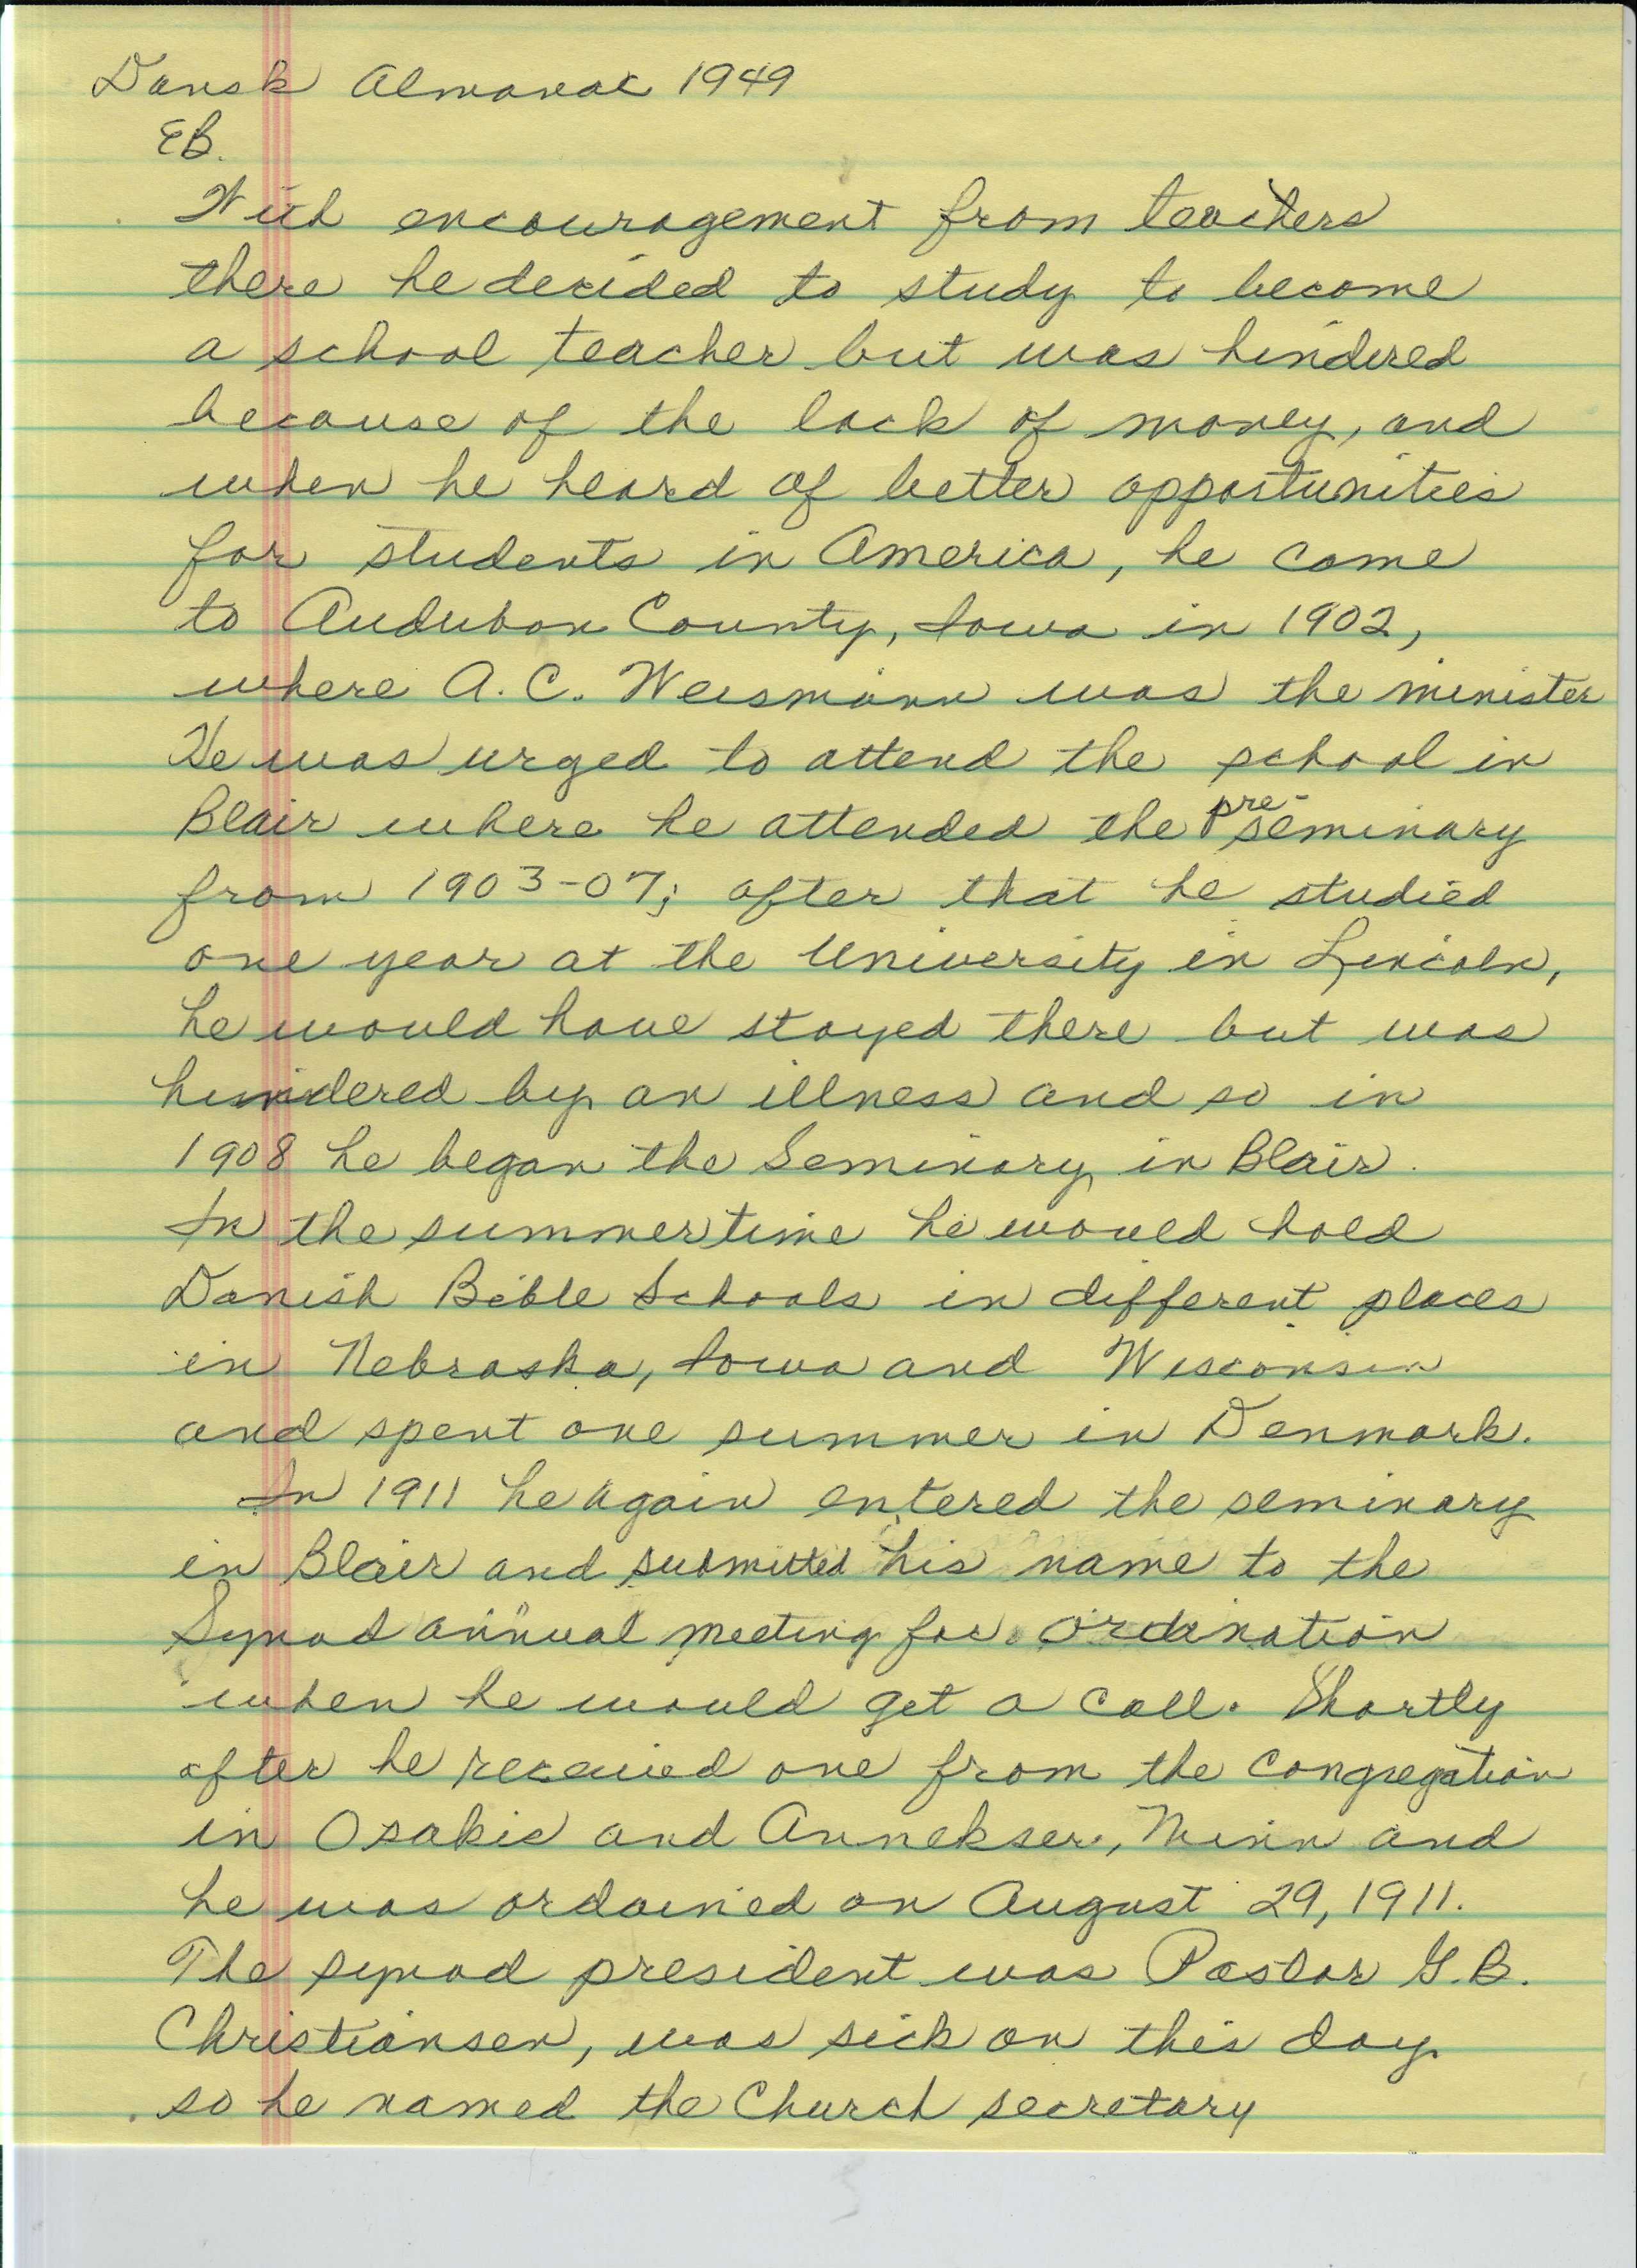 Dansk Almanac 1949
EB.
With encouragement from teachers
there he decided to study to become
a school teacher but was hindered
because of the lack of money, and
when he heard of better opportunities
for students in America, he came
to Audubon County, Iowa in 1902,
where A.C. Weismann was the minister
He was urged to attend the school in
Blair where he attended the pre-seminary
from 1903-07; after that he studied
one year at the University in Lincoln,
he would have stayed there but was
hindered by an illness and so in
1908 he began the Seminary in Blair.
In the summertime he would hold
Danish Bible Schools in different places
in Nebraska, Iowa and Wisconsin
and spent one summer in Denmark.
In 1911 he again entered the seminary
in Blair and submitted his name to the
Synod annual meeting for ordination
when he would get a call. Shortly
after he received one from the congregation
in Osakis and Annekser, Minn and
he was ordained on August 29, 1911.
The synod president was Pastor G.B.
Christiansen, was sick on this day
so he named the Church secretary